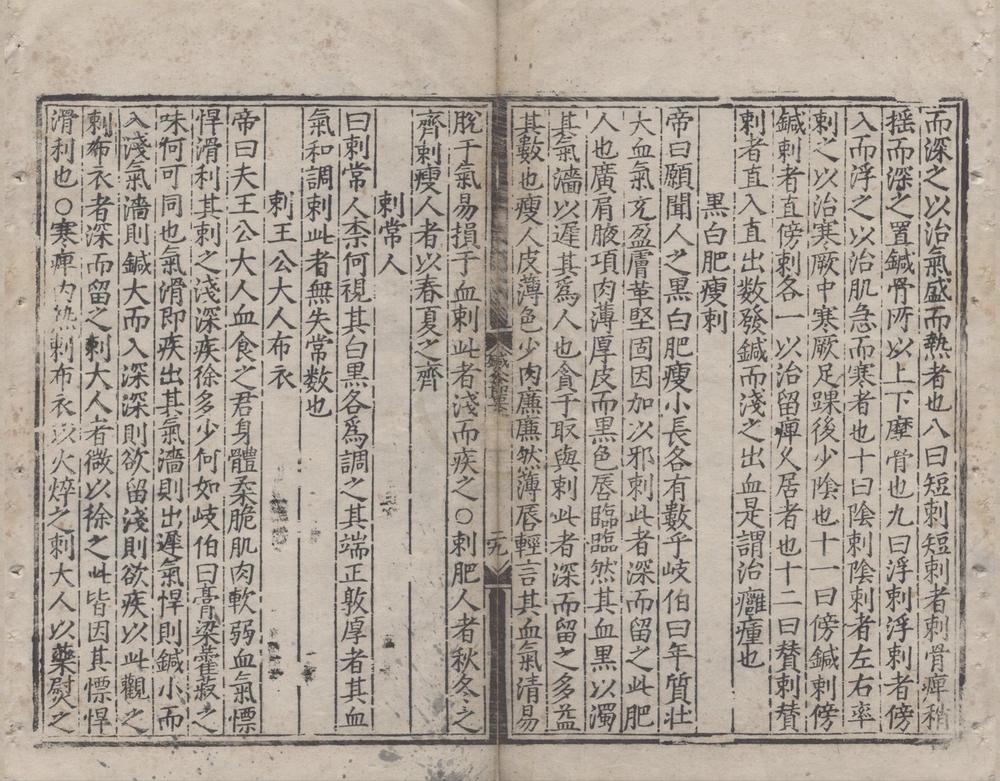 而深之以治氣盛而熱者也八曰短刺短刺者刺骨痺稍
揺而深之置鍼骨所以上下摩骨也九曰浮刺浮刺者傍
入而浮之以治肌急而寒者也十曰陰刺陰刺者左右率
刺之以治寒厥中寒厥足踝後少陰也十一曰傍鍼刺傍
鍼刺者直傍刺各一以治留痺久居者也十二曰賛刺賛
刺者直入直出数發鍼而淺之出血是謂治癰瘇也
黒白肥瘦刺
帝曰願聞人之黒白肥瘦小長各有數乎岐伯曰年質壯
大血氣充盈膚革堅固因加以邪刺此者深而留之此肥
人也廣肩腋項肉薄厚皮而黒色唇臨臨然其血黒以濁
其氣濇以遲其爲人也貪于取與刺此者深而留之多益
其數也瘦人皮薄色少肉廉廉然薄唇輕言其血氣清易
脫于氣易損于血刺此者淺而疾之○刺肥人者秋冬之
齊刺瘦人者以春夏之齊
刺常人
曰刺常人柰何視其白黒各爲調之其端正敦厚者其血
氣和調刺此者無失常数也
刺王公大人布衣
帝曰夫王公大人血食之君身體柔脆肌肉軟弱血氣慓
悍滑利其刺之淺深疾徐多少何如岐伯曰膏梁藿菽之
味何可同也氣滑即疾出其氣濇則出遲氣悍則鍼小而
入淺氣濇則鍼大而入深深則欲留淺則欲疾以此觀之
刺布衣者深而留之刺大人者微以徐之此皆因其慓悍
滑利也○寒痺内熱刺布衣以火焠之刺大人以藥熨之